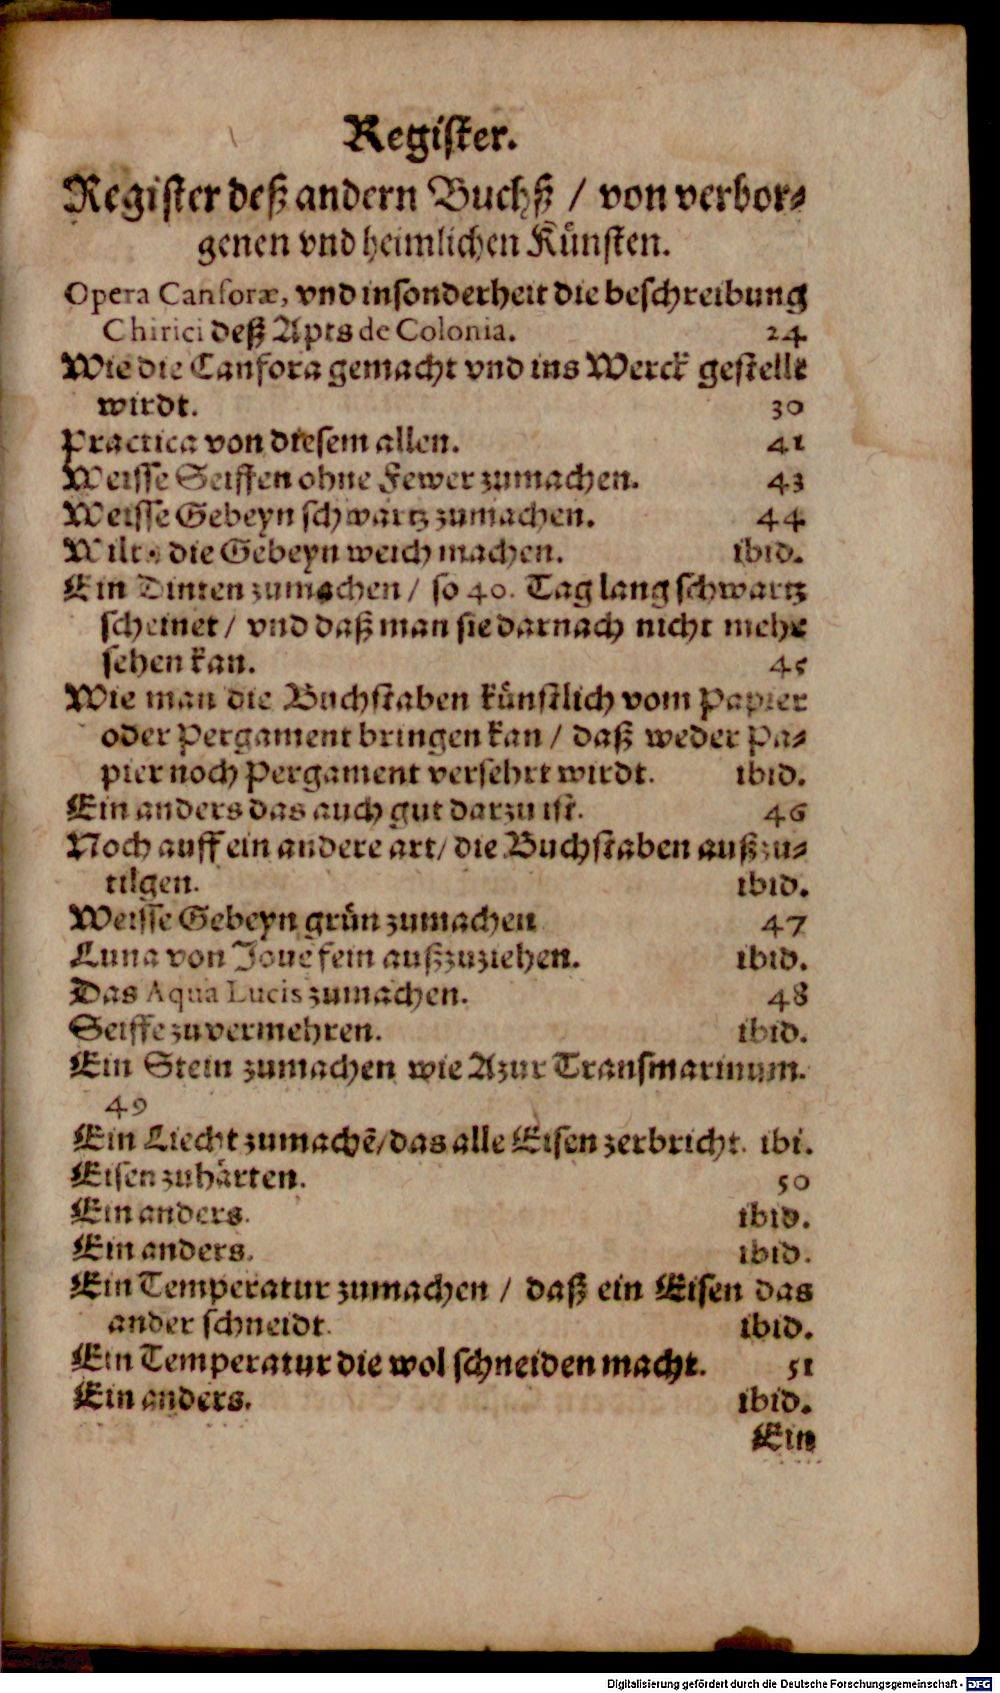 Register.
Register deß andern Buchß / von verbor-
genen vnd heimlichen Künsten.
Opera Canforæ, vnd insonderheit die beschreibung
Chirici deß Apts de Colonia. 24
Wie die Canfora gemacht vnd ins Werck gestelle
wirdt. 30
Practica von diesem allen. 41
Weisse Seiffen ohne Fewer zumachen. 43
Weisse Gebeyn schwartz zumachen. 44
die Gebeyn weich machen. ibid.
Ein Dinten zumachen / so 40. Tag lang schwartz
scheinet / vnd daß man sie darnach nicht mehr
sehen kan. 45
Wie man die Buchstaben künstlich vom Papier
oder Pergament bringen kan / daß weder Pa-
pier noch Pergament versehrt wirdt. ibid.
Ein anders das auch gut darzu ist. 46
Noch auff ein andere art / die Buchstaben außzu-
tilgen. ibid.
Weisse Gebeyn grün zumachen 47
Luna von Joue fein außzuziehen. ibid.
Das Aqua Lucis zumachen. 48
Seiffe zu vermehren. ibid.
Ein Stein zumachen wie Azur Transmarinum.
49
Ein Liecht zumachẽ / das alle Eisen zerbricht. ibi.
Eisen zuhärten. 50
Ein anders. ibid.
Ein anders. ibid.
Ein Temperatur zumachen / daß ein Eisen das
ander schneidt. ibid.
Ein Temperatur die wol schneiden macht. 51
Ein anders. ibid.
Ein
Digitalisierung gefördert durch die Deutsche Forschungsgemeinschaft - DFG